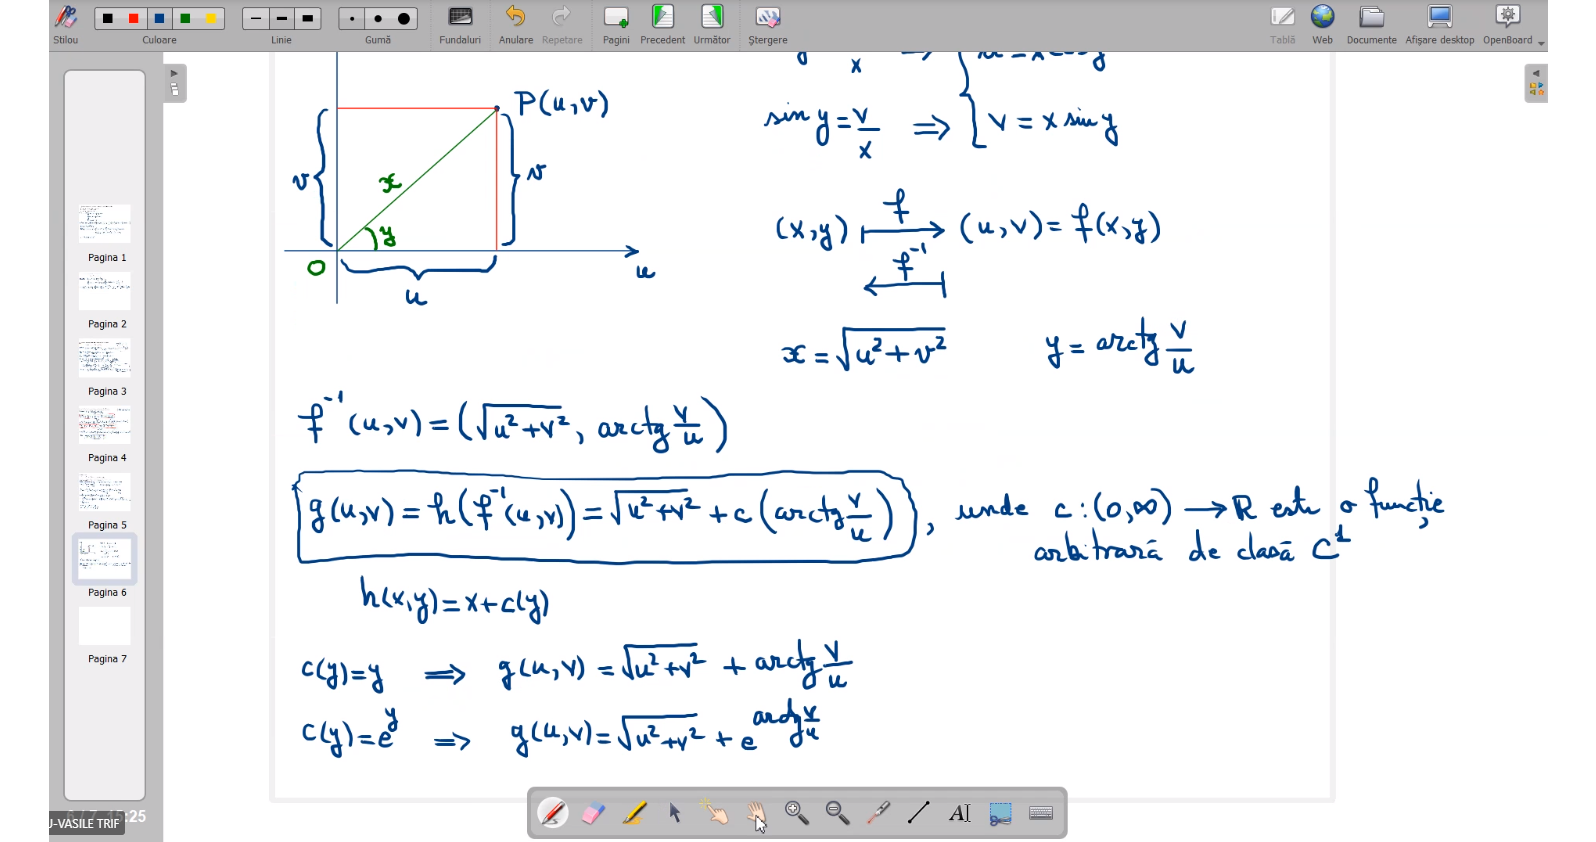 Stilou Culoare Linie Gumă Fundaluri Anulare Repetare Pagini Precedent Următor Ștergere Tablă Web Documente Afișare desktop OpenBoard
Pagina 1
Pagina 2
Pagina 3
Pagina 4
Pagina 5
Pagina 6
Pagina 7
15:25
U-VASILE TRIF
P(u,v)
v
x
v
y
O
u
u
sin y = v/x ⟹ { v = x sin y
(x,y) f⟼ (u,v) = f(x,y)
f⁻¹
x = √(u²+v²) y = arctg v/u
f⁻¹(u,v) = (√(u²+v²), arctg v/u)
g(u,v) = h(f⁻¹(u,v)) = √(u²+v²) + c(arctg v/u), unde c:(0,∞) → R este o funcție
arbitrară de clasă C¹
h(x,y) = x+c(y)
c(y)=y ⟹ g(u,v) = √(u²+v²) + arctg v/u
c(y)=e^y ⟹ g(u,v) = √(u²+v²) + e^(arctg v/u)